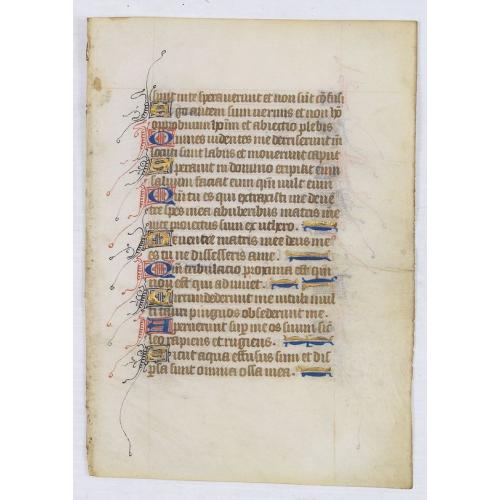 sunt in te speraverunt et non sūt cōfusi
Ego autem sum vermis et non hō
opprobrium hoīm et abiectio plebis
Omnes videntes me deriserunt m̄
locuti sunt labiis et moverunt caput
Speravit in domino eripiat eum
salvum faciat eum qm̄ vult eum
Qm̄ tu es qui extraxisti me de vē
tre spes mea ab uberibus matris me
in te proiectus sum ex utero.
De ventre matris mee deus me
es tu ne discesseris a me.
Qm̄ tribulacio proxima est qm̄
non est qui adiuvet.
Circundederunt me vituli mul
ti tauri pingues obsederunt me.
Aperuerunt sup me os suum sic
leo rapiens et rugiens.
Sicut aqua effusus sum et dis
psa sunt omnia ossa mea.